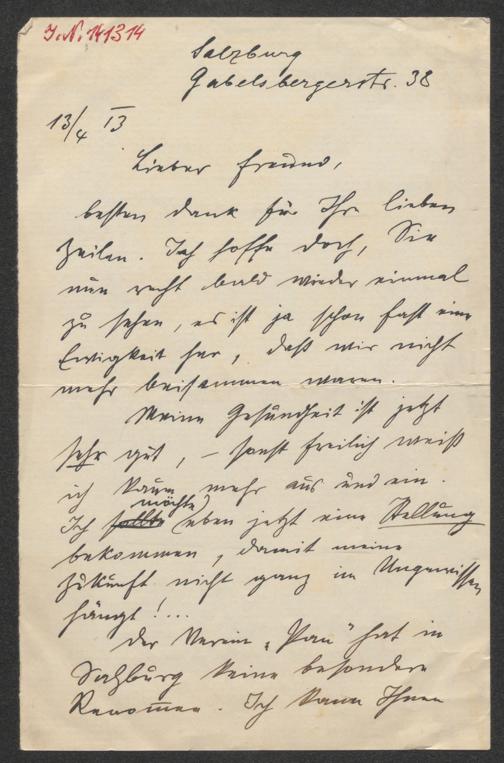 J.N. 141314
Salzburg
Gabelsbergerstr. 38
13/4 13
Lieber Freund,
besten Dank für Ihre lieben
Zeilen. Ich hoffe doch, Sie
nun recht bald wieder einmal
zu sehen, es ist ja schon fast eine
Ewigkeit her, daß wir nicht
mehr beisammen waren.
Meine Gesundheit ist jetzt
sehr gut, – sonst freilich weiß
ich kaum mehr aus und ein.
möchte
Ich sollte eben jetzt eine Stellung
bekommen, damit meine
Zukunft nicht ganz im Ungewissen
hängt!...
Der Verein „Pan" hat in
Salzburg keine besondere
Renommee. Ich kann Ihnen